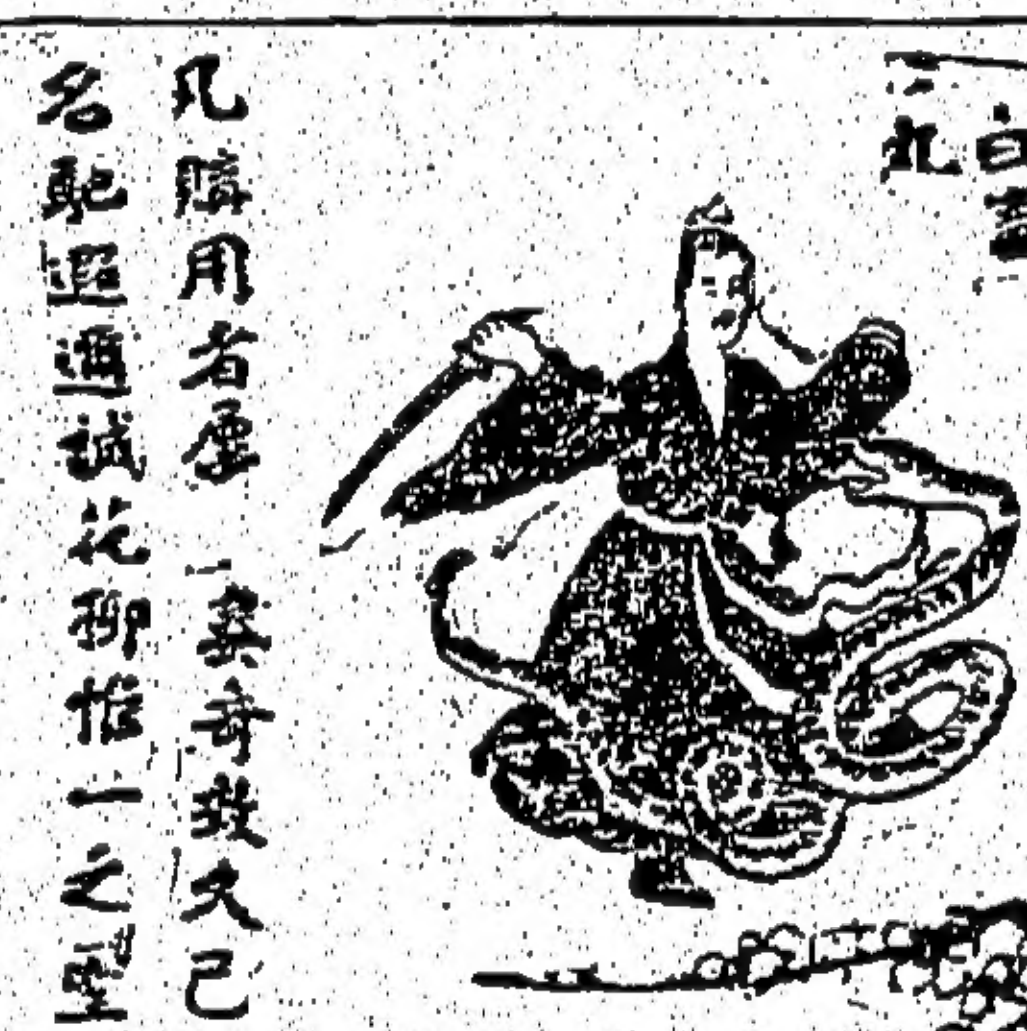 白
丸
凡購用者屢奏奇效久已
名馳遐邇誠花柳惟一之聖